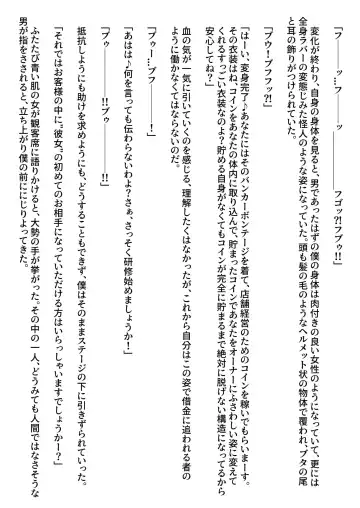 「フ――ッ…フ――ッ　　　フゴッ?!ブゥ!!」
変化が終わり、自身の身体を見ると、男であったはずの僕の身体は肉付きの良い女性のようになっていて、更には
全身ラバーの変態じみた怪人のような姿になっていた。頭も髪の毛のようなヘルメット状の物体で覆われ、ブタの尾
と耳の飾りがつけられていた。
「ブゥーブフフッ?!」
「はーい、変身完了♪あなたにはそのバンカーボンテージを着て、店舗経営のためのコインを稼いでもらいまーす。
その衣装はね、コインをあなたの体内に取り込んで、貯まったコインであなたをオーナーにふさわしい姿に変えて
くれるすっごい衣装なのよ?貯める自身がなくてもコインが完全に貯まるまで絶対に脱げない構造になってるから
安心してね?」
「プゥ―…ブフ　　　――!」
「あはは♪何を言っても伝わらないわよ?さぁ、さっそく研修始めましょうか!」
血の気が一気に引いていくのを感じる、理解したくはなかったが、これから自分はこの姿で借金に追われる者の
ように働かなくてはならないのだ。
「ブゥ　　　――!!ブゥ　　　――!!」
抵抗しようにも助けを求めようにも、どうすることもできず、僕はそのままステージの下に引きずられていった。
「それではお客様の中に、"彼女"の初めてのお相手になっていただける方はいらっしゃいますでしょうかー?」
ふたたび青い肌の女が観客席に語りかけると、大勢の手が挙がった。その中の一人、どうみても人間ではなさそうな
男が指をさされると、立ち上がり僕の前ににじりよってきた。